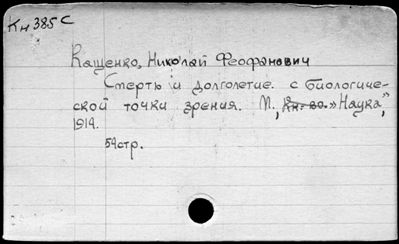 Кн 385 С
Кащенко, Николай Феофанович
Смерть и долголетие с биологиче-
ской точки зрения. М. „Кн-во» Наука",
1914.
54стр.